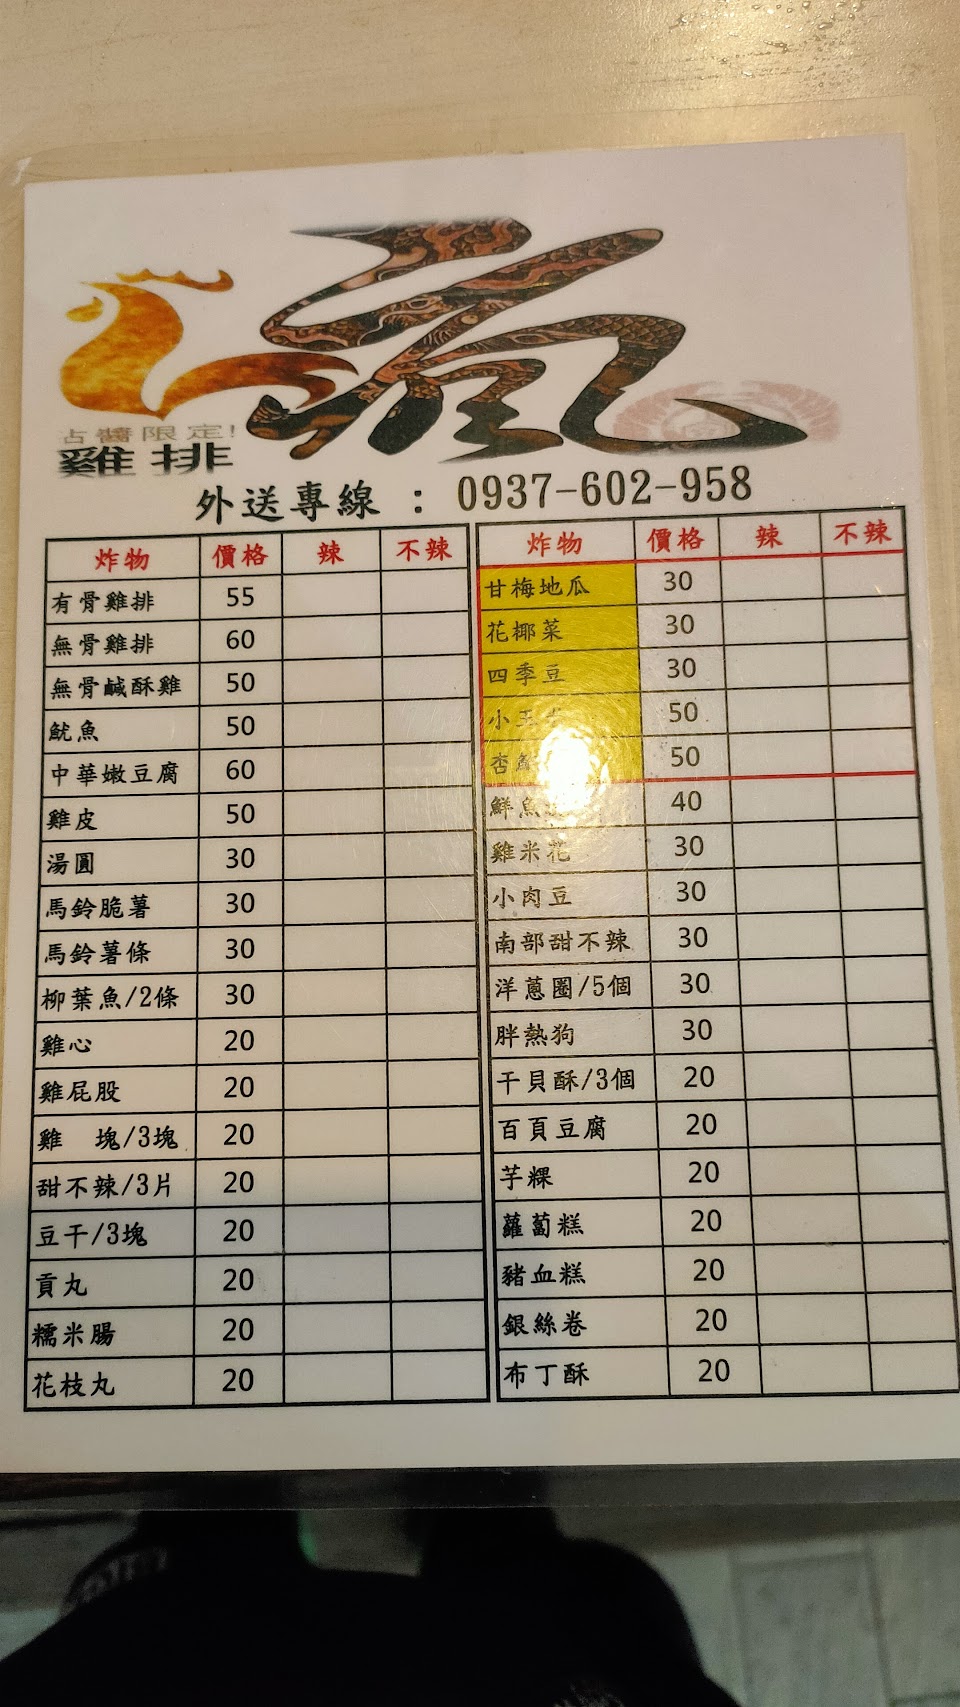 瘋
占醬限定!
雞排
外送專線 : 0937-602-958
炸物 價格 辣 不辣
有骨雞排 55
無骨雞排 60
無骨鹹酥雞 50
魷魚 50
中華嫩豆腐 60
雞皮 50
湯圓 30
馬鈴脆薯 30
馬鈴薯條 30
柳葉魚/2條 30
雞心 20
雞屁股 20
雞 塊/3塊 20
甜不辣/3片 20
豆干/3塊 20
貢丸 20
糯米腸 20
花枝丸 20
炸物 價格 辣 不辣
甘梅地瓜 30
花椰菜 30
四季豆 30
小玉 50
杏鮑 50
鮮魚 40
雞米花 30
小肉豆 30
南部甜不辣 30
洋蔥圈/5個 30
胖熱狗 30
干貝酥/3個 20
百頁豆腐 20
芋粿 20
蘿蔔糕 20
豬血糕 20
銀絲卷 20
布丁酥 20